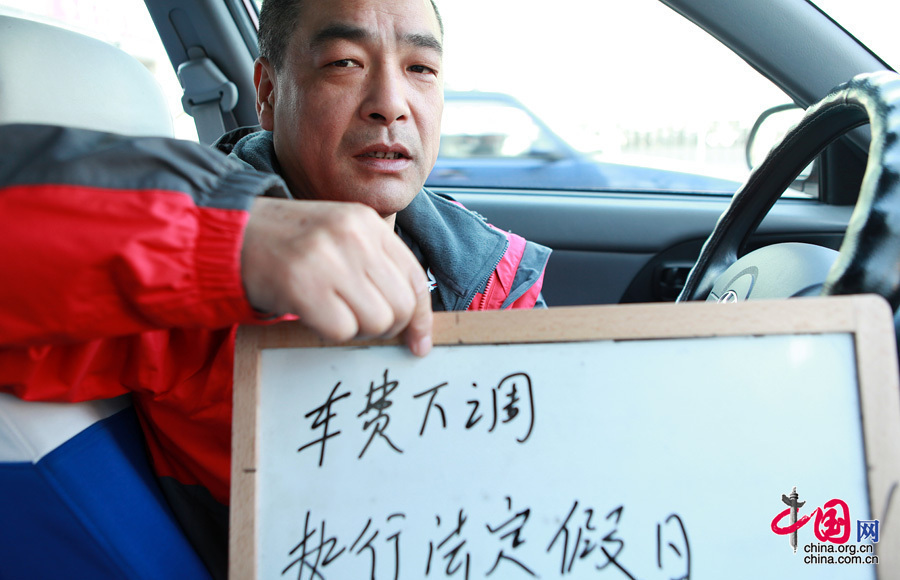 车费下调
执行法定假日
中国网
china.org.cn
china.com.cn